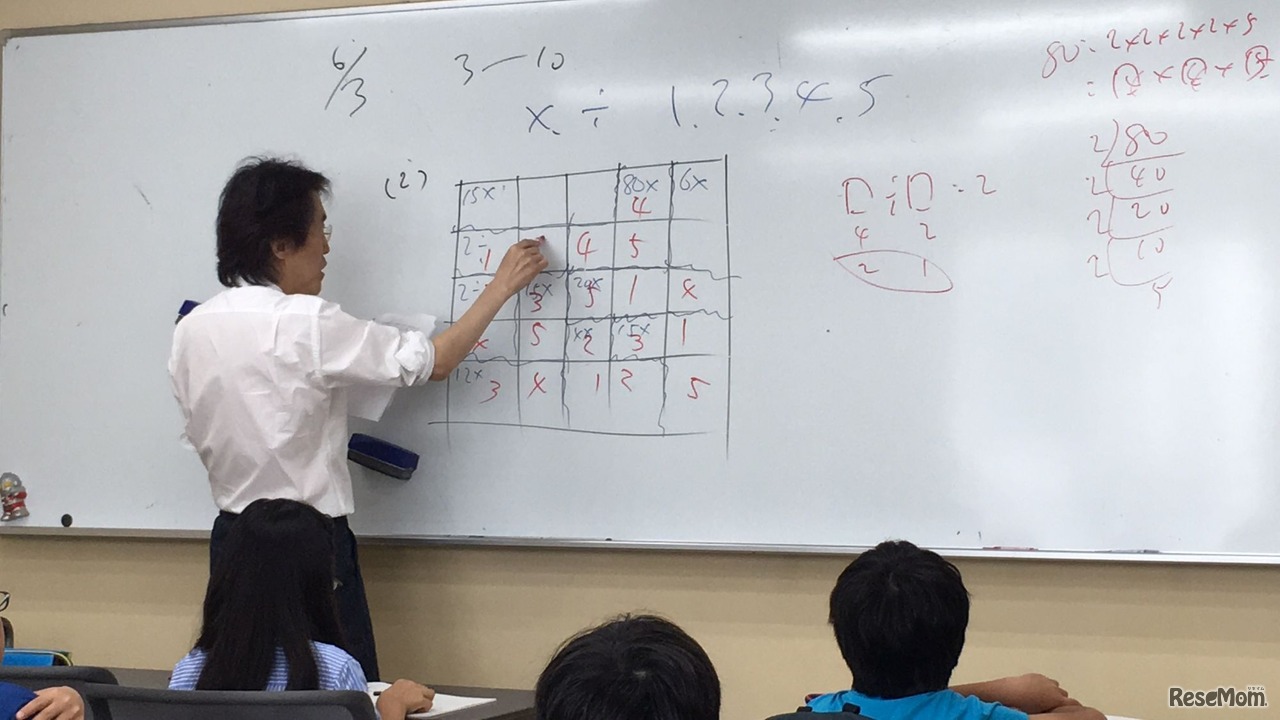 6/3
3—10
×. ÷ 1.2.3.4.5
(2)
15× 80× 6×
4
2÷ 1 4 5
2÷ 15× 3 20× 5 1 4
5 2 15× 3 1
12× 3 4 1 2 5
□÷□=2
4 2
2 1
80=2×2×2×2×5
2)80
2 40
2 20
2 10
5
ReseMom.